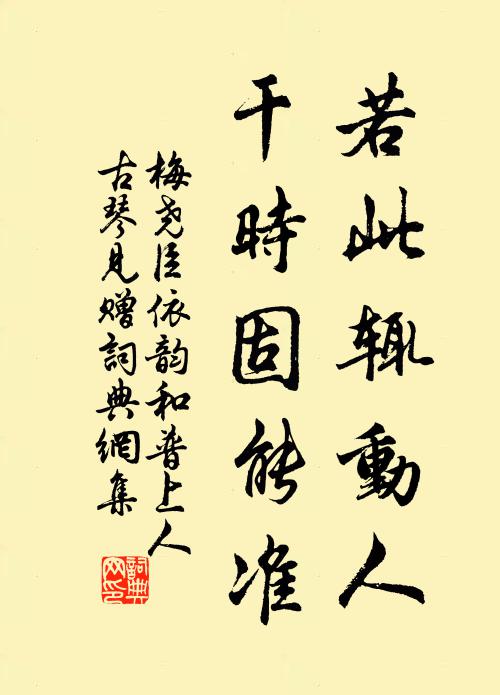 若此辄動人
干時固能准
梅尧臣依韵和普上人
古琴見赠詞典網集
詞典网印